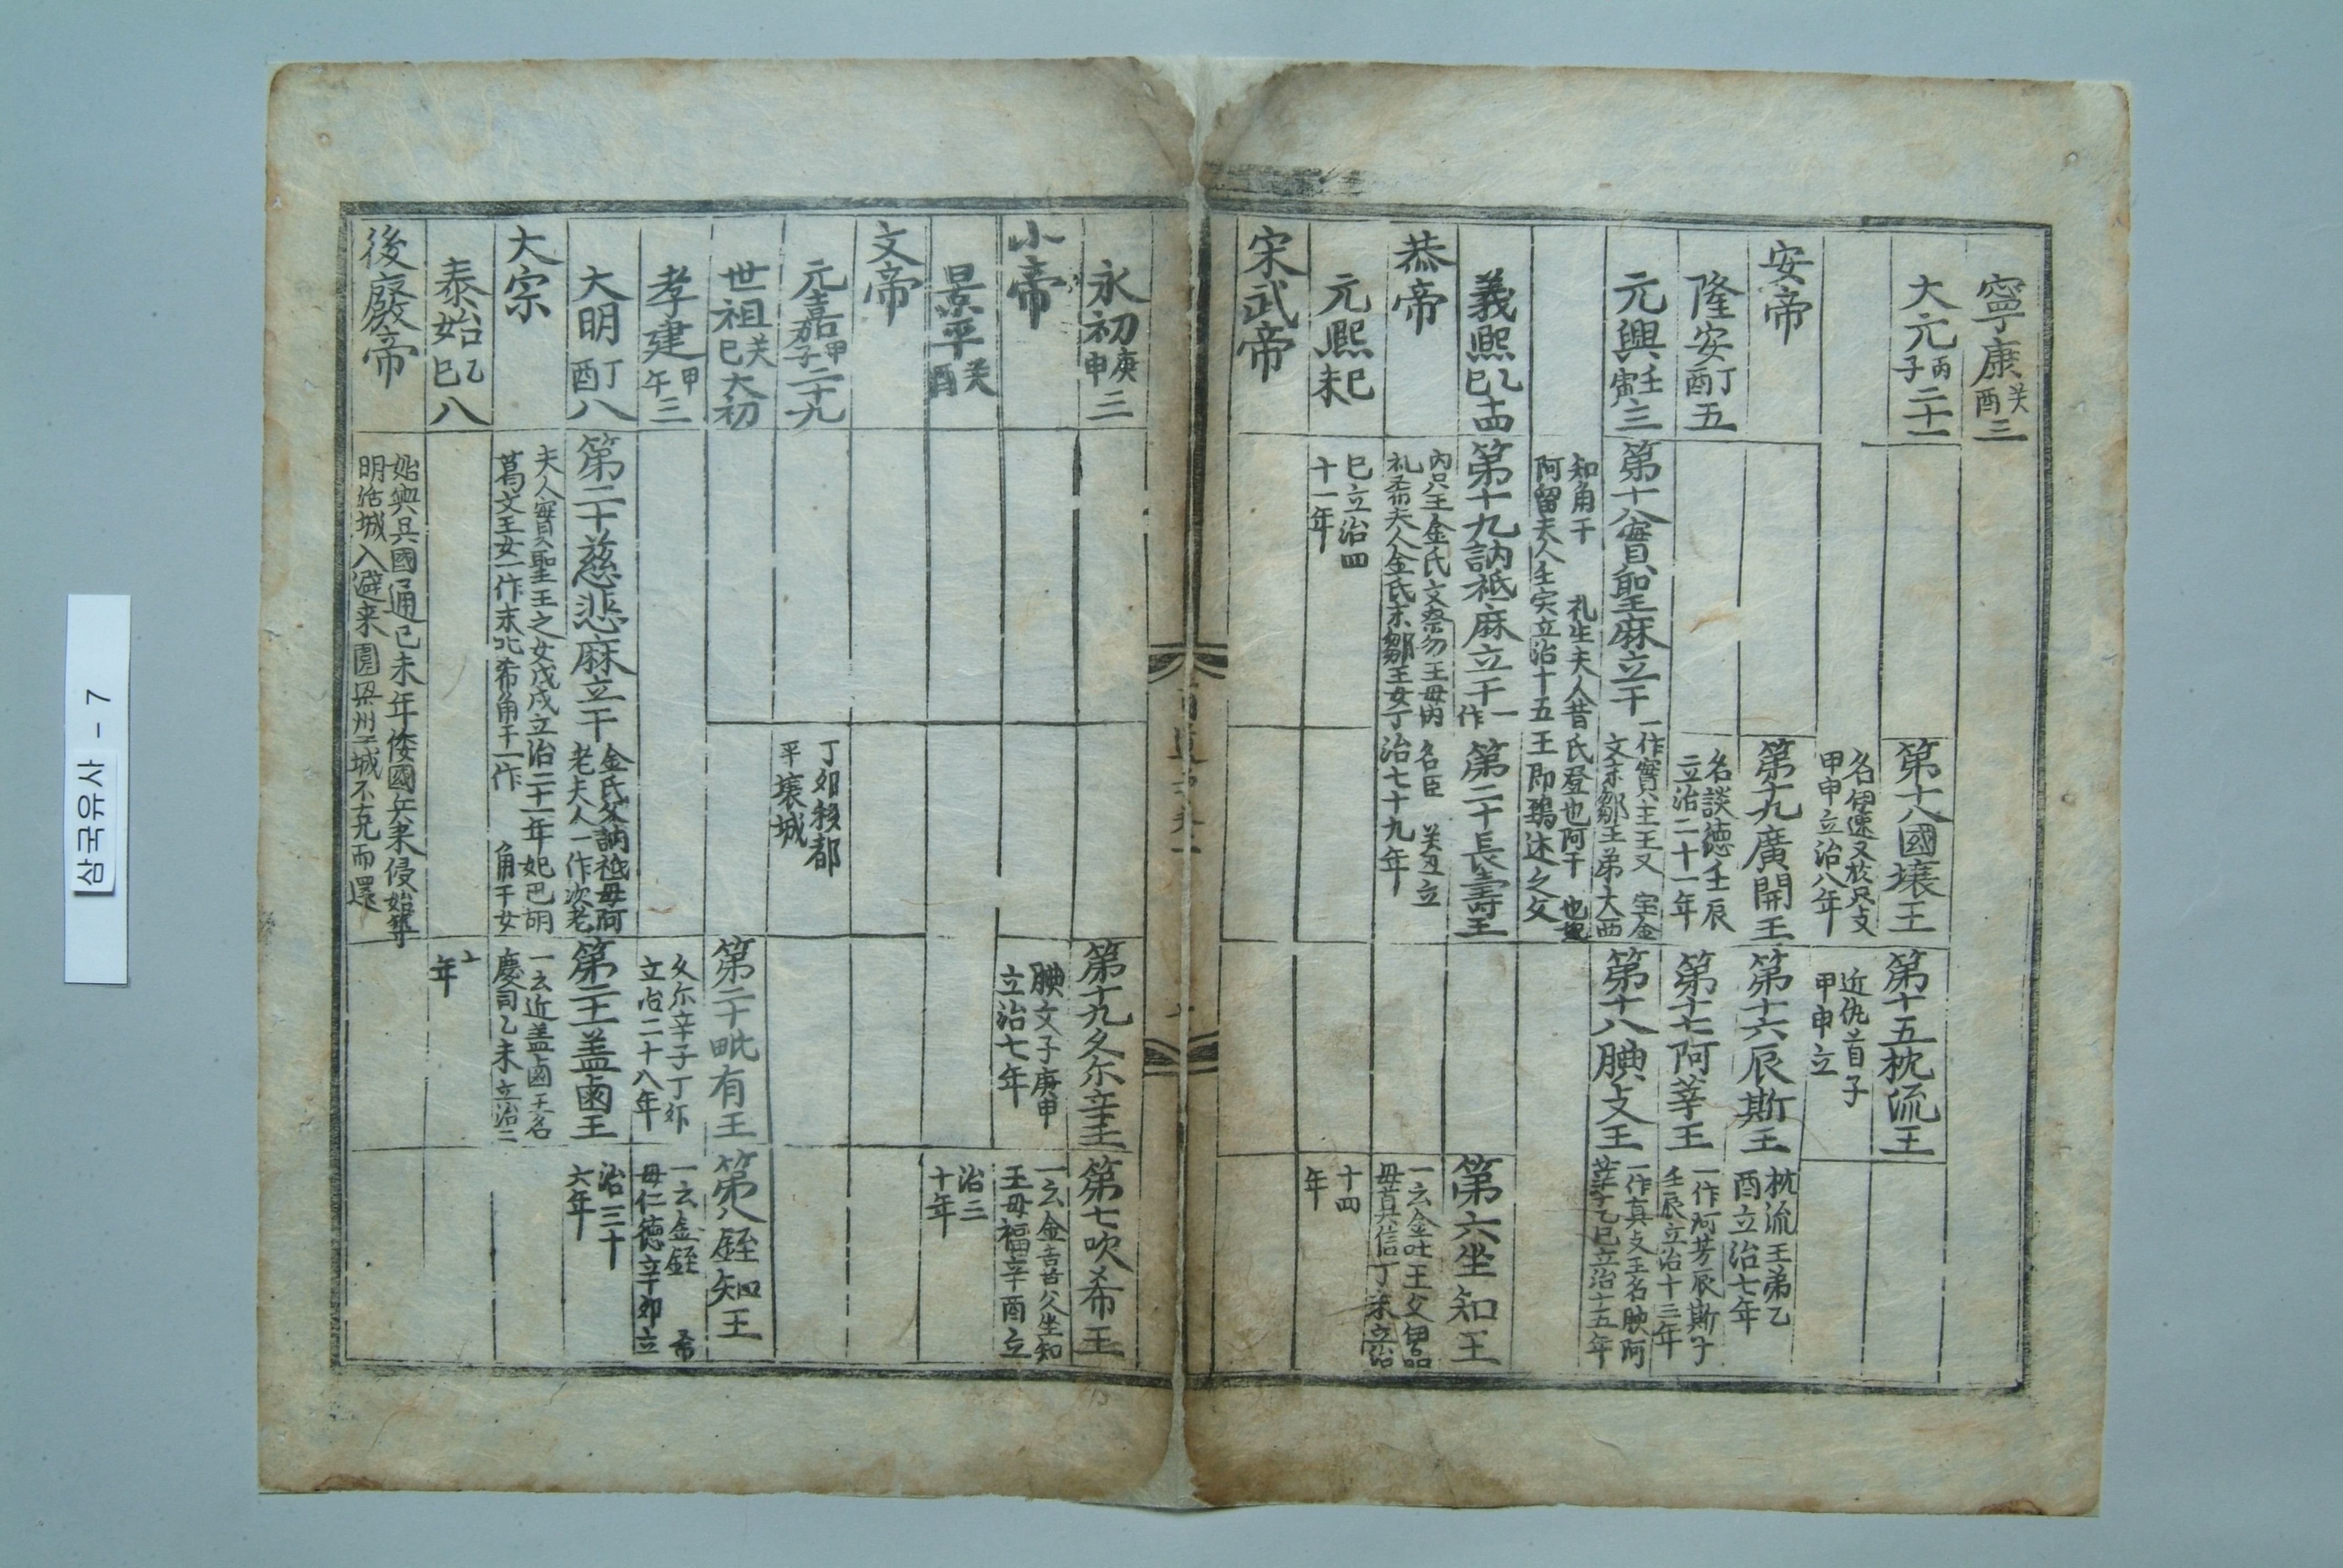 寧康癸酉三
大元丙子二十一
第十八國壤王
第十五枕流王
名伊速又於只支
甲申立治八年
近仇首子
甲申立
安帝
第十九廣開王
第十六辰斯王
枕流王弟乙
酉立治七年
隆安丁酉五
名談德壬辰
立治二十一年
第十七阿莘王
一作阿芳辰斯子
壬辰立治十三年
元興壬寅三
第十八實聖麻立干
一作實主王又宝金
文末鄒王弟大西
第十八腆支王
一作真支王名腆阿
莘子乙巳立治十五年
知角干 礼生夫人昔氏登也阿干也妃
阿留夫人立治十五王即鵄述之父
義熙乙巳十四
第十九訥祗麻立干一作
第二十長壽王
第六坐知王
恭帝
內只王金氏父奈勿王母內
礼希夫人金氏末鄒王女丁
名臣 癸丑立
治七十九年
一云金吐王父伊品
母貞信丁未立治
元熙己未
巳立治四
十一年
十四
年
宋武帝
永初庚申三
第十九久尓辛王
第七吹希王
小帝
腆支子庚申
立治七年
一云金喜父坐知
王母福辛酉立
景平癸酉
治三
十年
文帝
元嘉甲子二十九
丁卯移都
平壤城
世祖癸巳大初
第二十毗有王
第八銍知王
孝建甲午三
久尓辛子丁卯
立治二十八年
一云金銍 希
母仁德辛卯立
大明丁酉八
第二十慈悲麻立干
金氏父訥祗母阿
老夫人一作次老
第二十一盖鹵王
治三十
六年
大宗
夫人實聖王之女戊戌立治二十一年妃巴胡
葛文王女一作未叱希角干一作 角干女
一云近盖鹵王名
慶司乙未立治二
泰始乙巳八
十
年
後廢帝
始與吳國通己未年倭國兵來侵始築
明活城入避来圍梁州二城不克而還
삼국유사 - 7